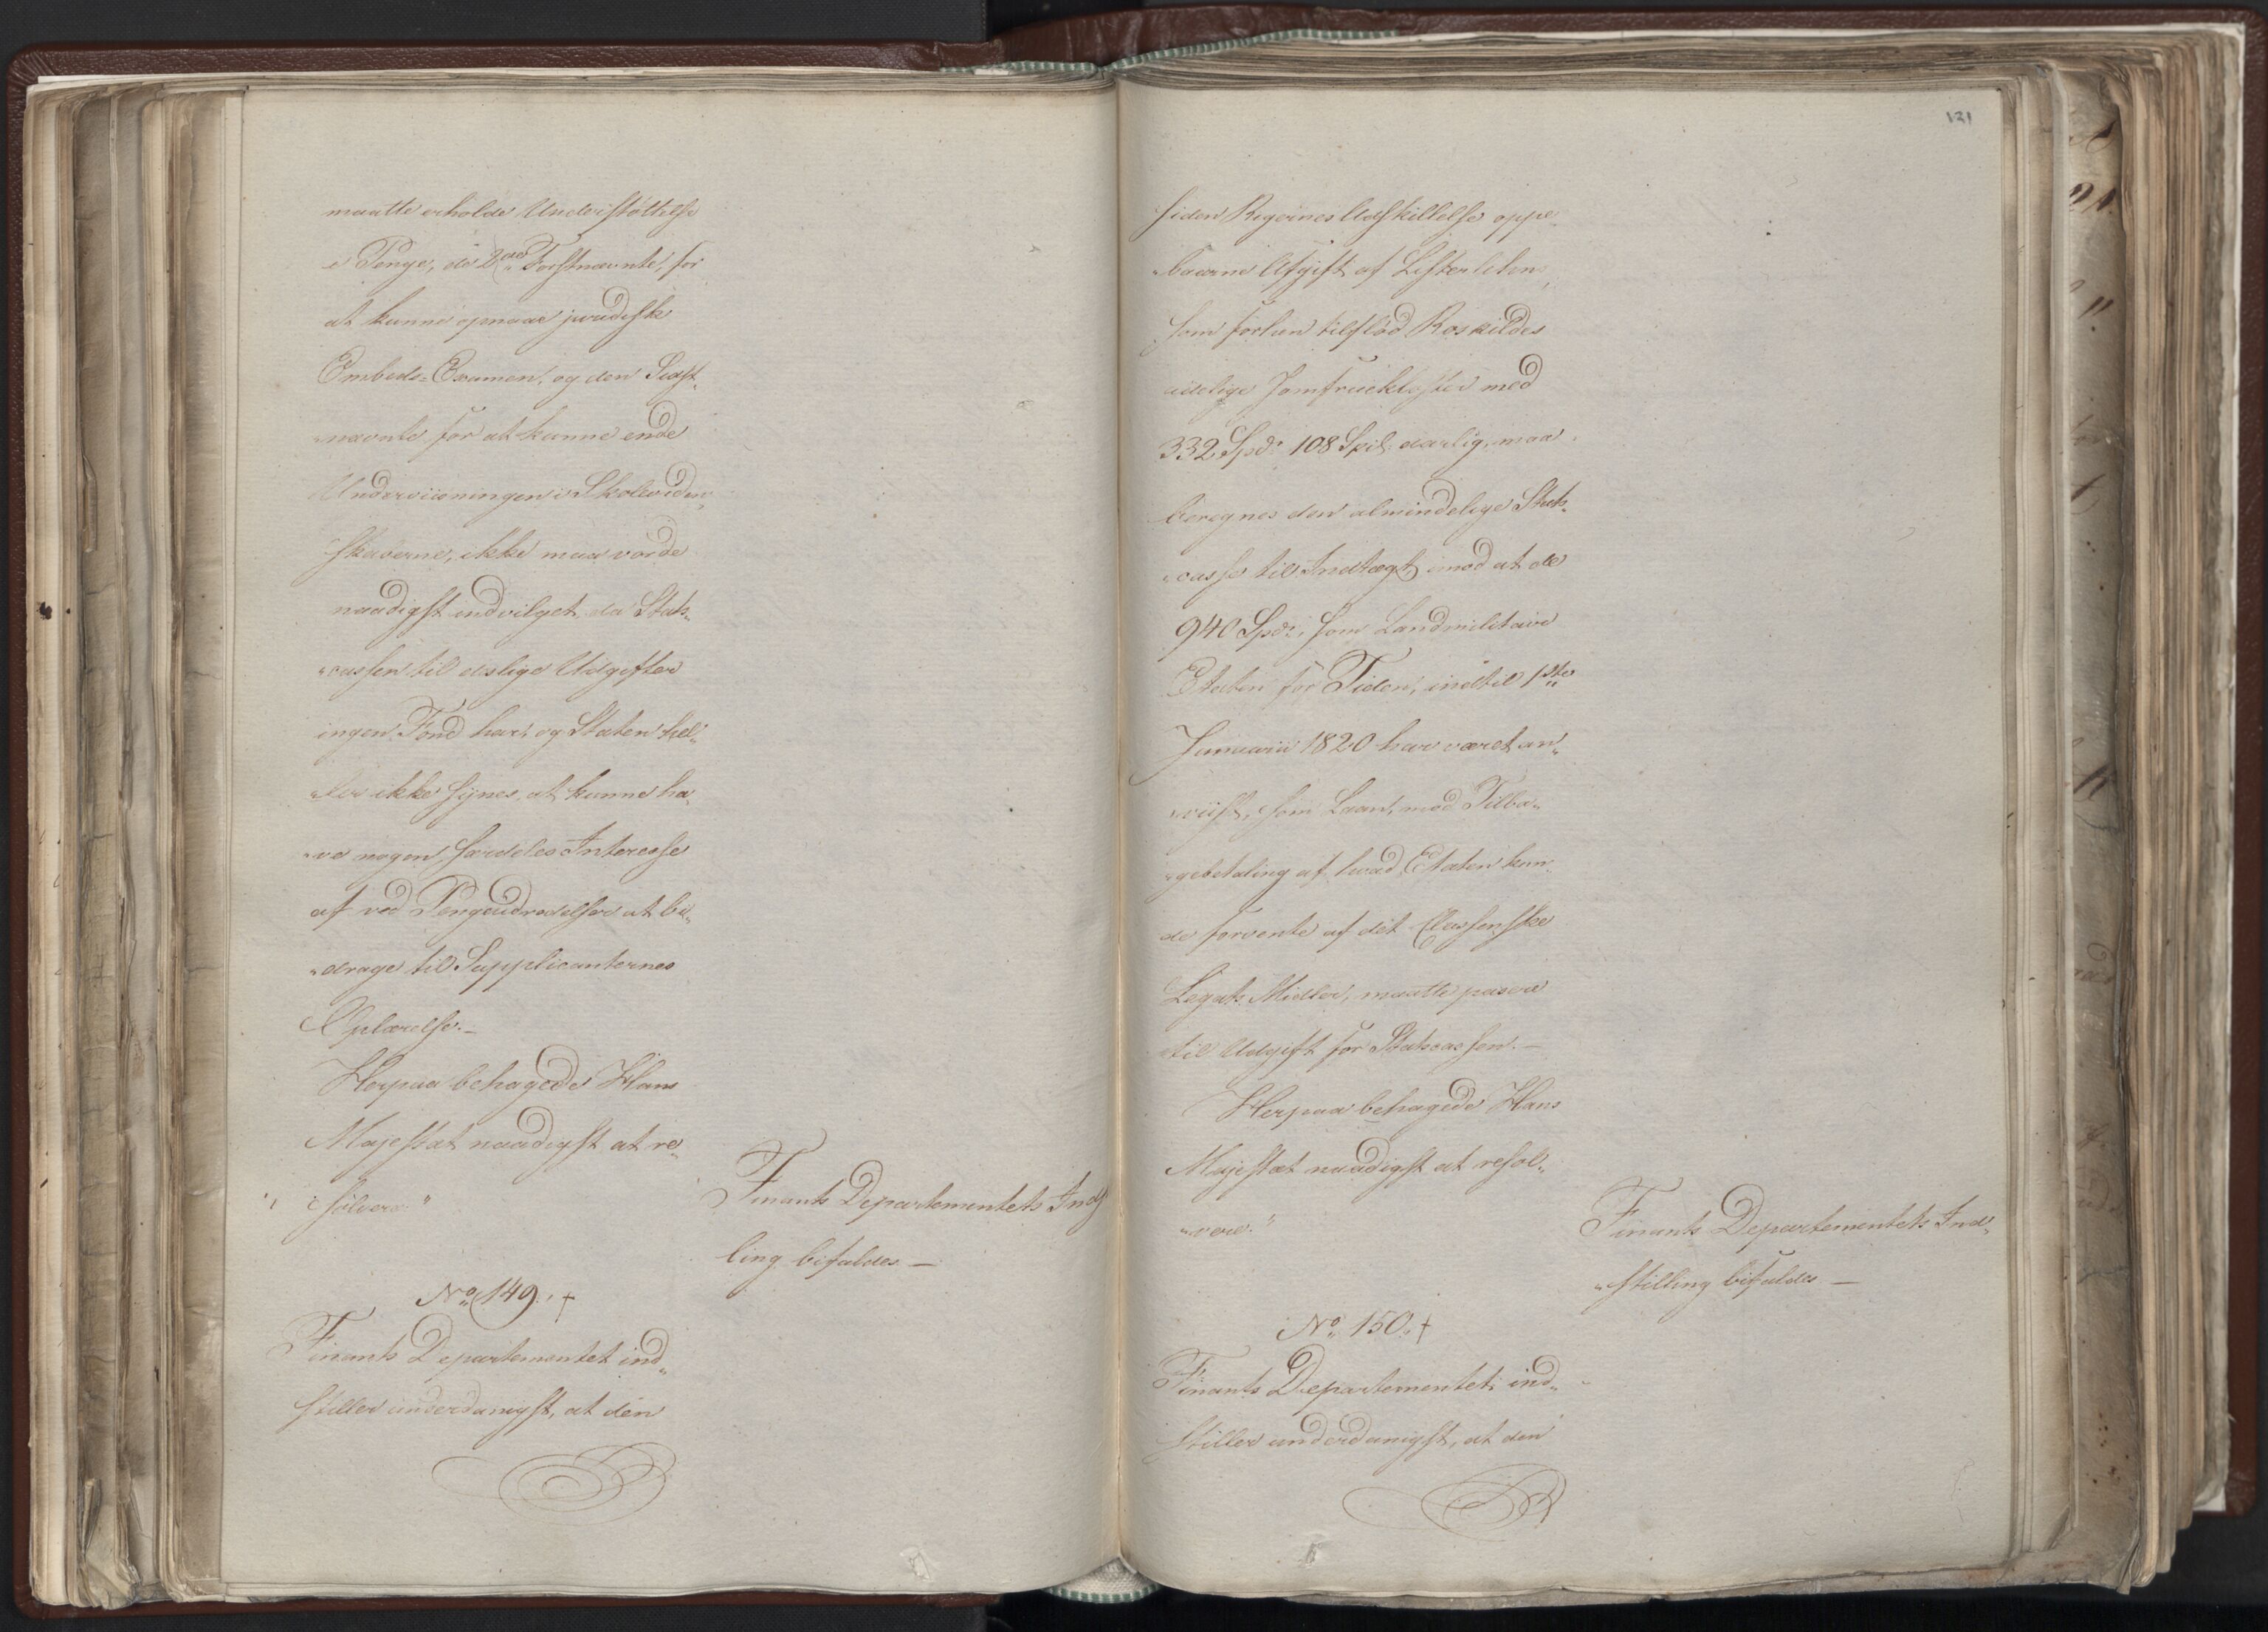 maatte erholde Understøttelse
i Penge, de 2de Førstnævnte, for
at kunne opnaae juridiske
Embeds-Examen, og den Sidst-
nævnte for at kunne ende
Underviisningen i Skolevidens
skaberne, ikke maa vorde
naadigst indvilget, da Stats-
cassen til deslige Udgifter
ingen Fond har, og Staten hel-
ler ikke synes at kunne ha-
ve nogen særdeles Interesse
af ved Pengeudredelser at bi-
drage til Supplicanternes
Oplærelse.-
Herpaa behagede Hans
Majestæt naadigst at re-
solvere:"
Finants Departementets Inds
ling bifaldes —
No. 149. +
Finants Departementet ind-
stiller underdanigst, at den
131
siden Rigernes Udskillelse oppe-
baarne Afgift af Listerlehn,
som forhen tilflød Roskildes
adelige Jomfruekloster med
332 Spd. 108 Skil. aarlig, maa
beregnes den almindelige Stats-
casse til Indtægt, imod at de
940 Spd., som Landmilitaire
Etaten for Tiden, indtil 1ste
Januarii 1820 har været an-
viist, som Laan, mod Tilba-
gebetaling af hvad Etaten kun-
de forvente af det Classenske
Legats Midler, maatte passere
til Udgift for Statscassen.—
Herpaa behagede Hans
Majestæt naadigst at resol-
vere:"
Finants Departementets Ind-
stilling bifaldes —
No. 150. +
Finants Departementet ind-
stiller underdanigst, at den